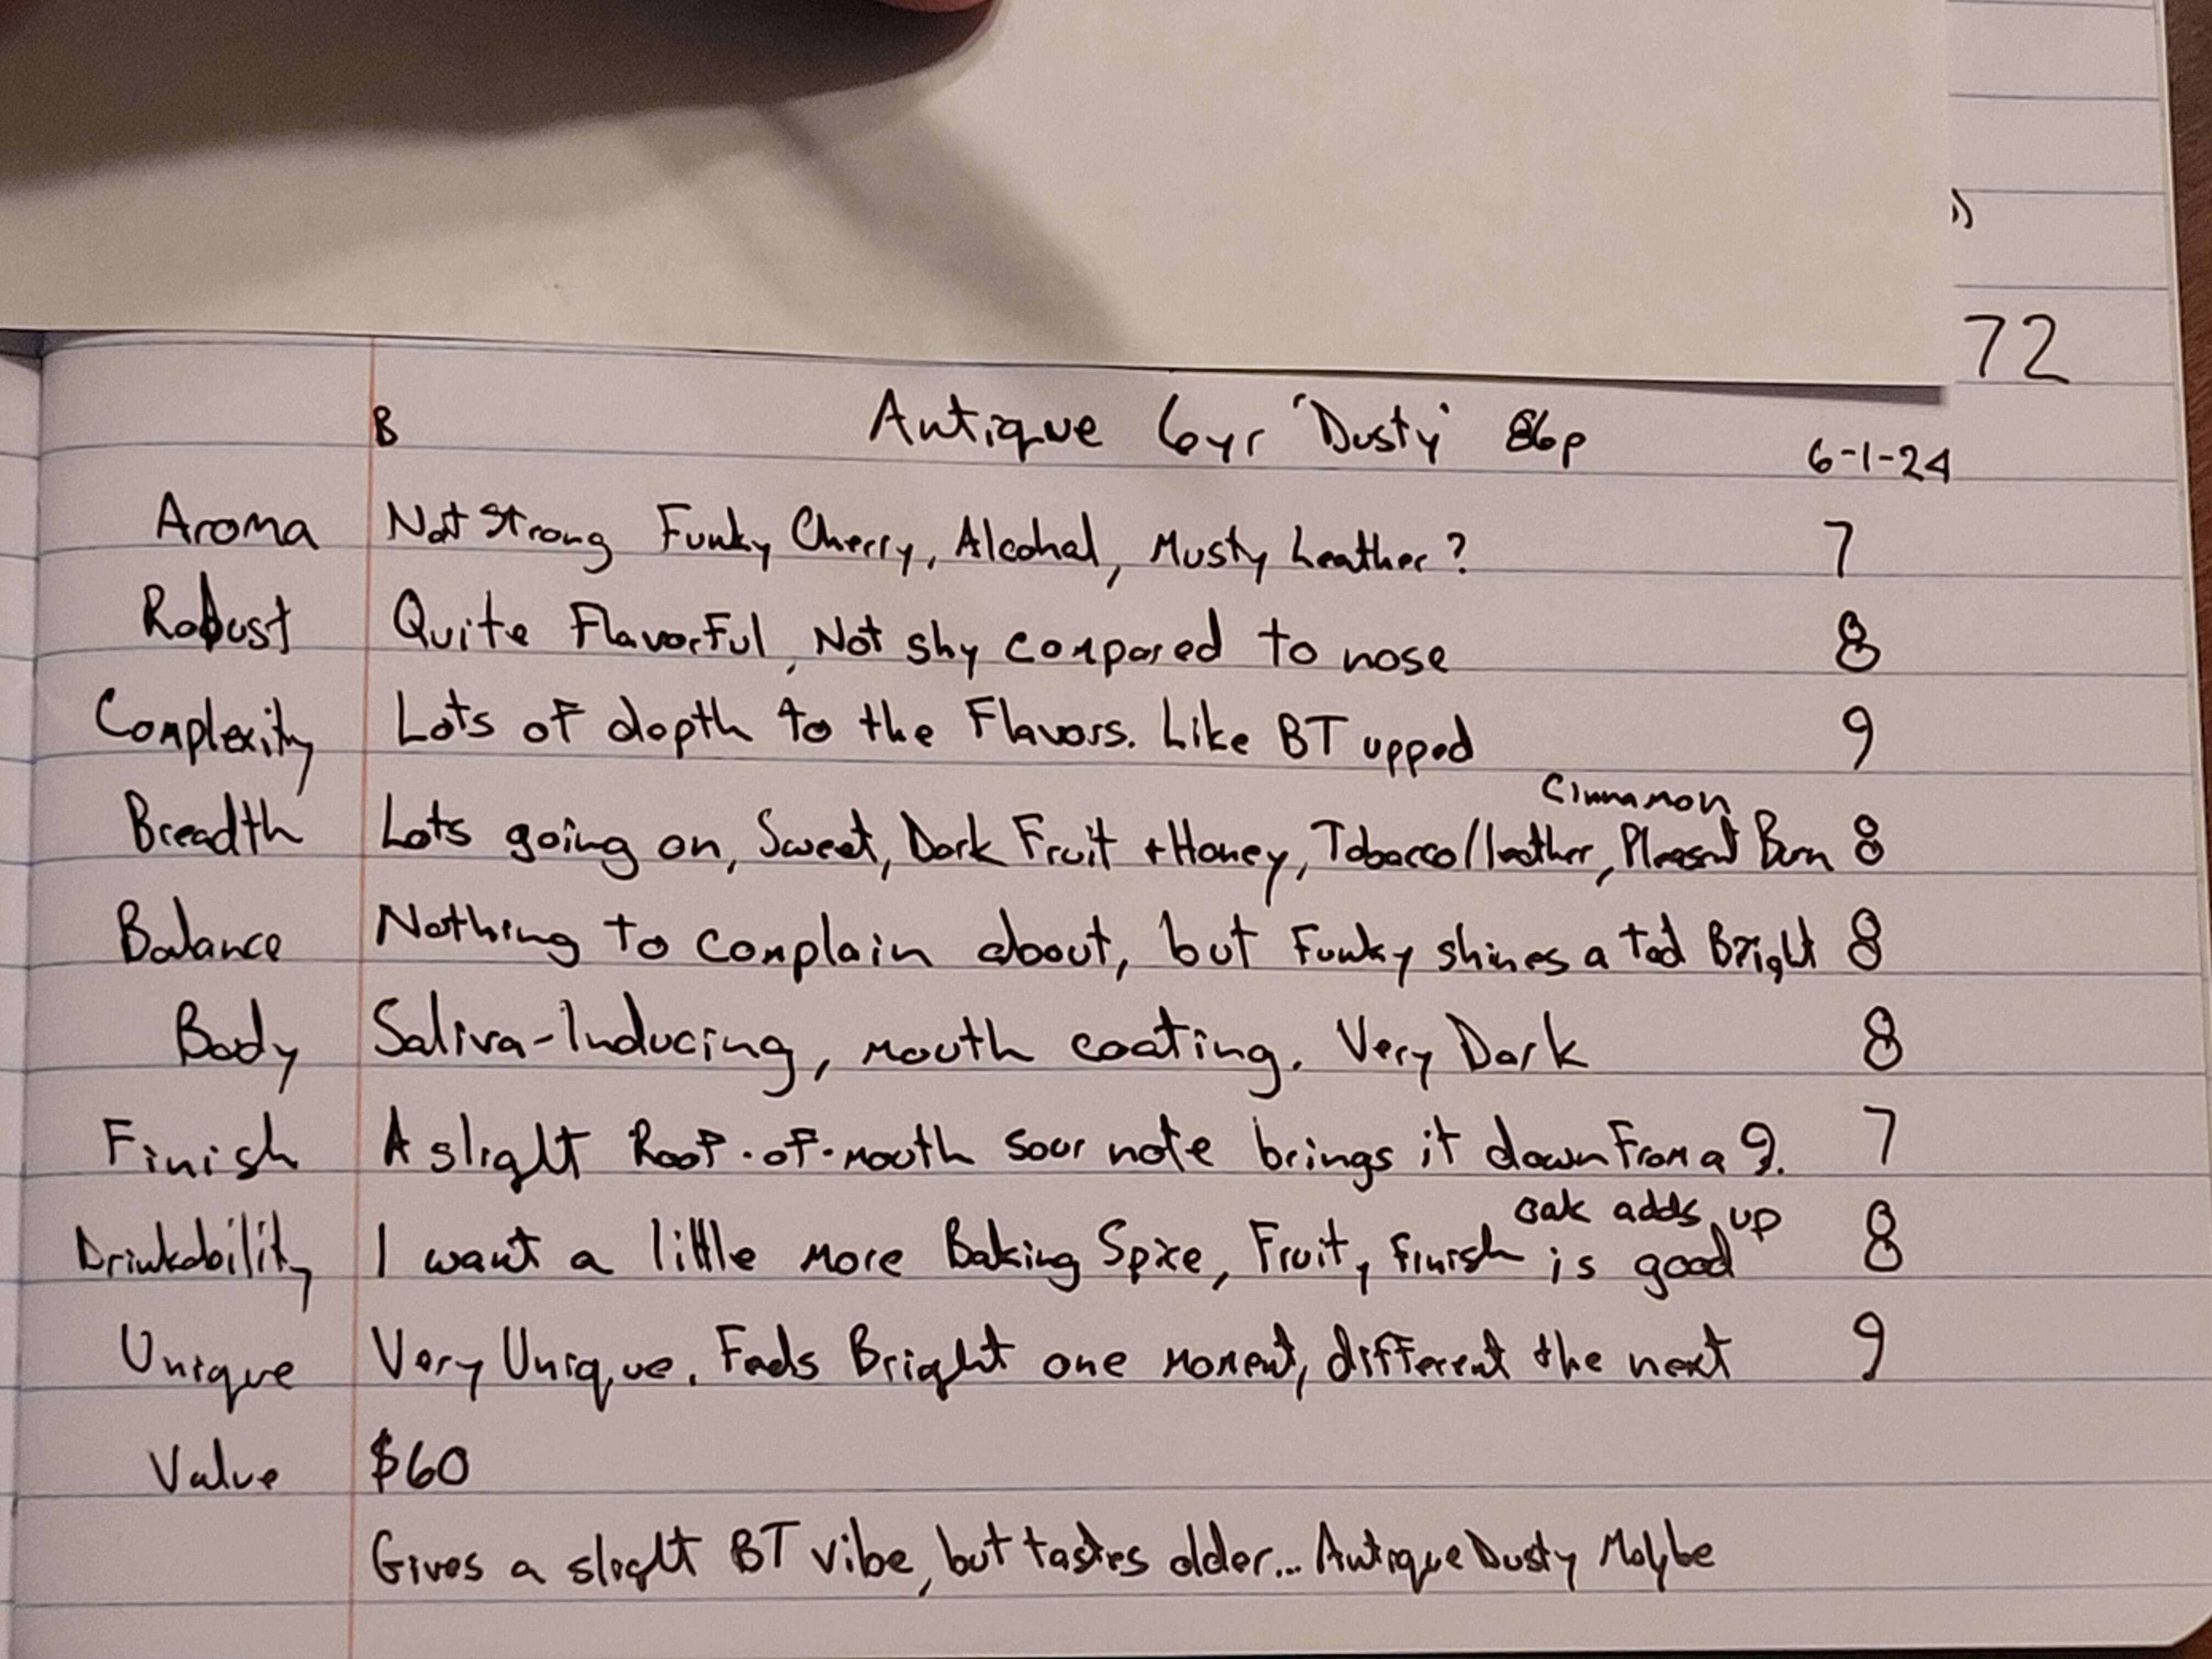 72
B Antique 6yr 'Dusty' 86p 6-1-24
Aroma Not Strong Funky Cherry, Alcohol, Musty Leather? 7
Robust Quite Flavorful, Not shy compared to nose 8
Complexity Lots of depth to the Flavors. Like BT upped 9
Cinnamon
Breadth Lots going on, Sweet, Dark Fruit + Honey, Tobacco/leather, Pleasant Burn 8
Balance Nothing to complain about, but Funky shines a tad Bright 8
Body Saliva-Inducing, mouth coating. Very Dark 8
Finish A slight Roof-of-mouth sour note brings it down From a 9. 7
oak adds up
Drinkability I want a little more Baking Spice, Fruit, Finish is good 8
Unique Very Unique. Feels Bright one moment, different the next 9
Value $60
Gives a slight BT vibe, but tastes older... Antique Dusty Maybe